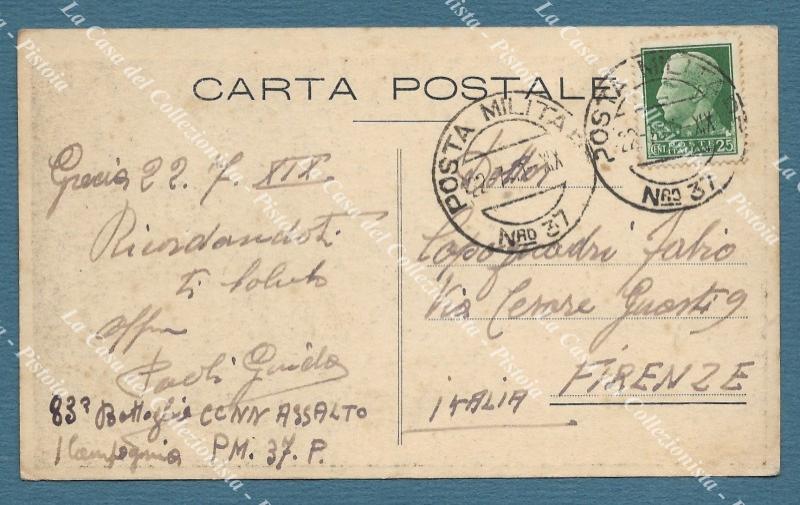 CARTA POSTALE
POSTA MILITARE
22
XIX
NRO 37
POSTA MILIT
22
XIX
NRO 37
25
Grecia 22. 7. XIX.
Ricordandoti
ti saluto
Paoli Guido
83ª Battaglione CCNN ASSALTO
1 Compagnia PM. 37. P.
Dottor
Capoquadri Fabio
Via Cesare Guasti 9
FIRENZE
ITALIA
La Casa del Collezionista - Pistoia